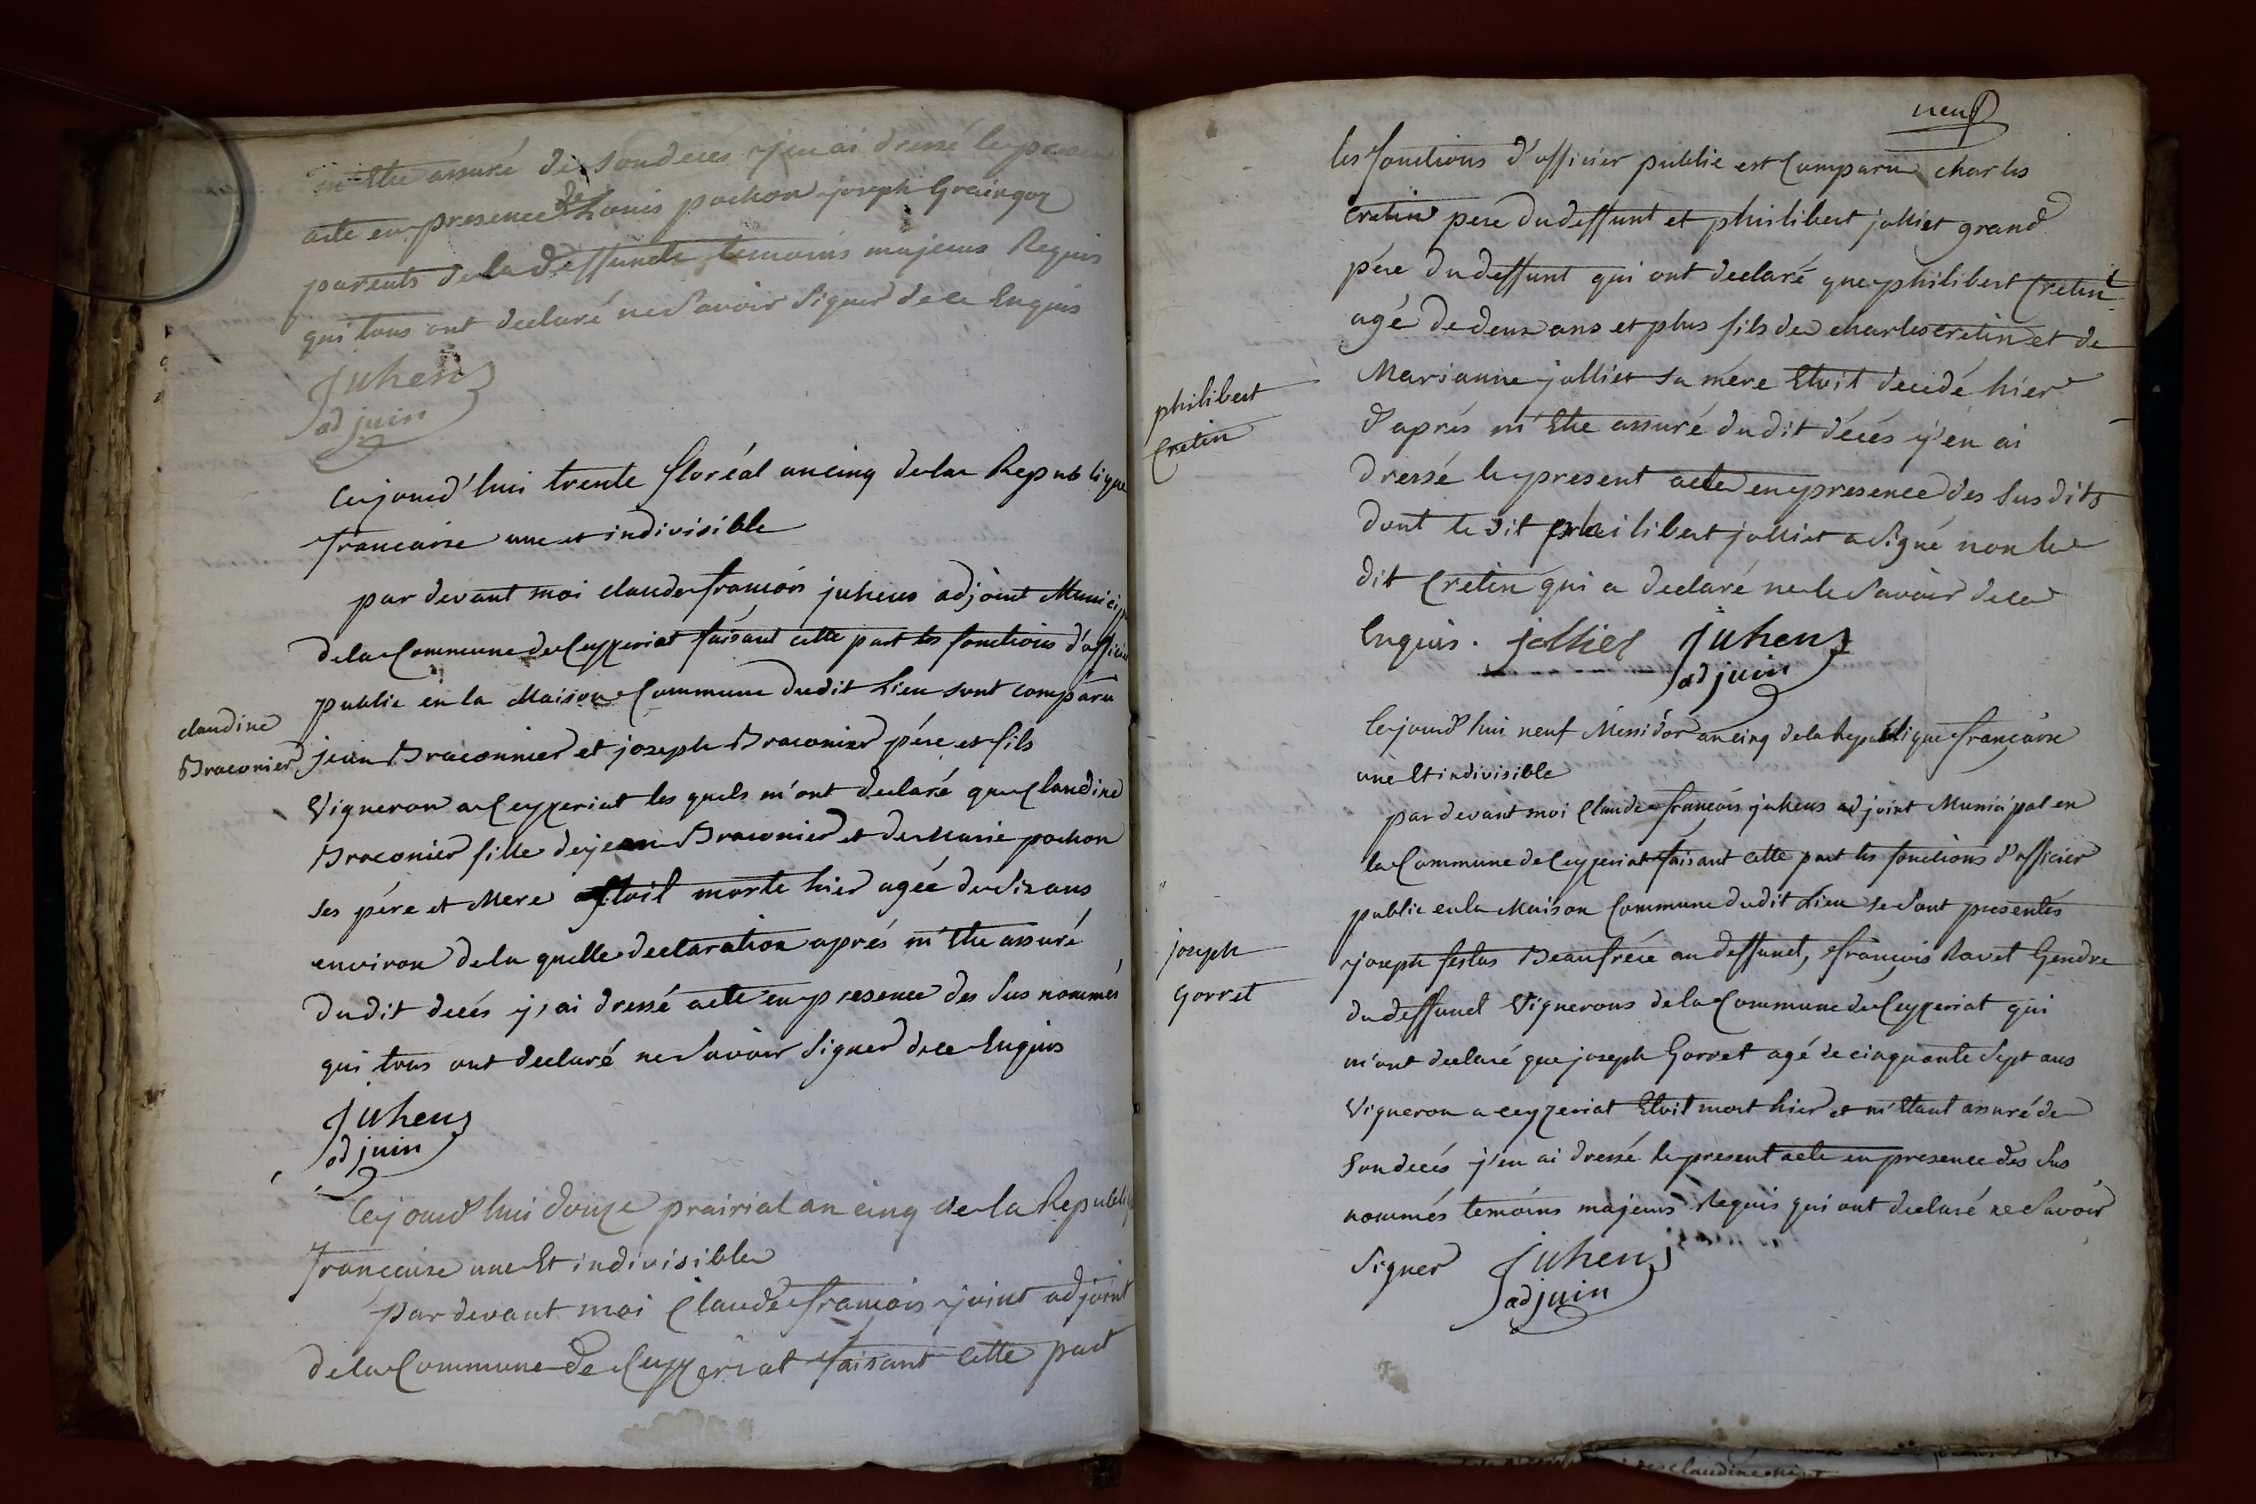 m'etre assuré de son deces j'en ai dressé le present
acte en presence de Louis pochon joseph Graingoz
parents de la deffunte temoins majeurs Requis
qui tous ont declaré ne Savoir Signer de ce Enquis
Juhens
adjuin
Cejourd'hui trente floréal an cinq de la Republique
francaise une et indivisible
par devant moi claude francois juhens adjoint Municip
de la Commune de Ceyzeriat faisant cette part les fonctions d'officier
public en la Maison Commune dudit Lieu sont comparu
claudine
Braconier
jean Braconnier et joseph Braconier pére et fils
Vigneron a Ceyzeriat les quels m'ont declaré que Claudine
Braconier fille de jean Braconier et de Marie pochon
ses pére et Mere Etoit morte hier agée de Six ans
environ de la quelle declaration aprés m'etre assuré
du dit decés j'ai dressé acte en presence des Sus nommés
qui tous ont declaré ne Savoir Signer de ce Enquis
Juhens
adjuin
Cejourd'hui douze prairial an cinq de la Republiq
francaise une Et indivisible
par devant moi Claude francois juint adjoint
de la Commune de Ceyzeriat faisant cette part
neuf
les fonctions d'officier public est Comparu charles
cretin pere du deffunt et philibert jolliet grand
pére du deffunt qui ont declaré que philibert Cretin
agé de deux ans et plus fils de charles cretin et de
philibert
Cretin
Marianne jolliet sa mére Etoit decedé hier
d'aprés m'Etre assuré du dit décés j'en ai
dressé le present acte en presence des Susdits
dont le dit philibert jolliet a Signé non le
dit Cretin qui a declaré ne le Savoir de ce
Enquis. jolliet Juhens
adjuin
Cejourd'hui neuf Messidor an cinq de la Republique française
une Et indivisible
par devant moi Claude françois juhens adjoint Municipal en
la Commune de Ceyzeriat faisant cette part les fonctions d'officier
public en la Maison Commune dudit Lieu se Sont presentés
joseph
Gorret
joseph festas Beaufrére au deffunct, françois Ravet Gendre
du deffunct Vignerons de la Commune de Ceyzeriat qui
m'ont declaré que joseph Gorret agé de cinquante Sept ans
Vigneron a ceyzeriat Etoit mort hier et m'Etant assuré de
Son decés j'en ai dressé le present acte en presence des Sus
nommés temoins majeurs Requis qui ont declaré ne Savoir
Signer Juhens
adjuin